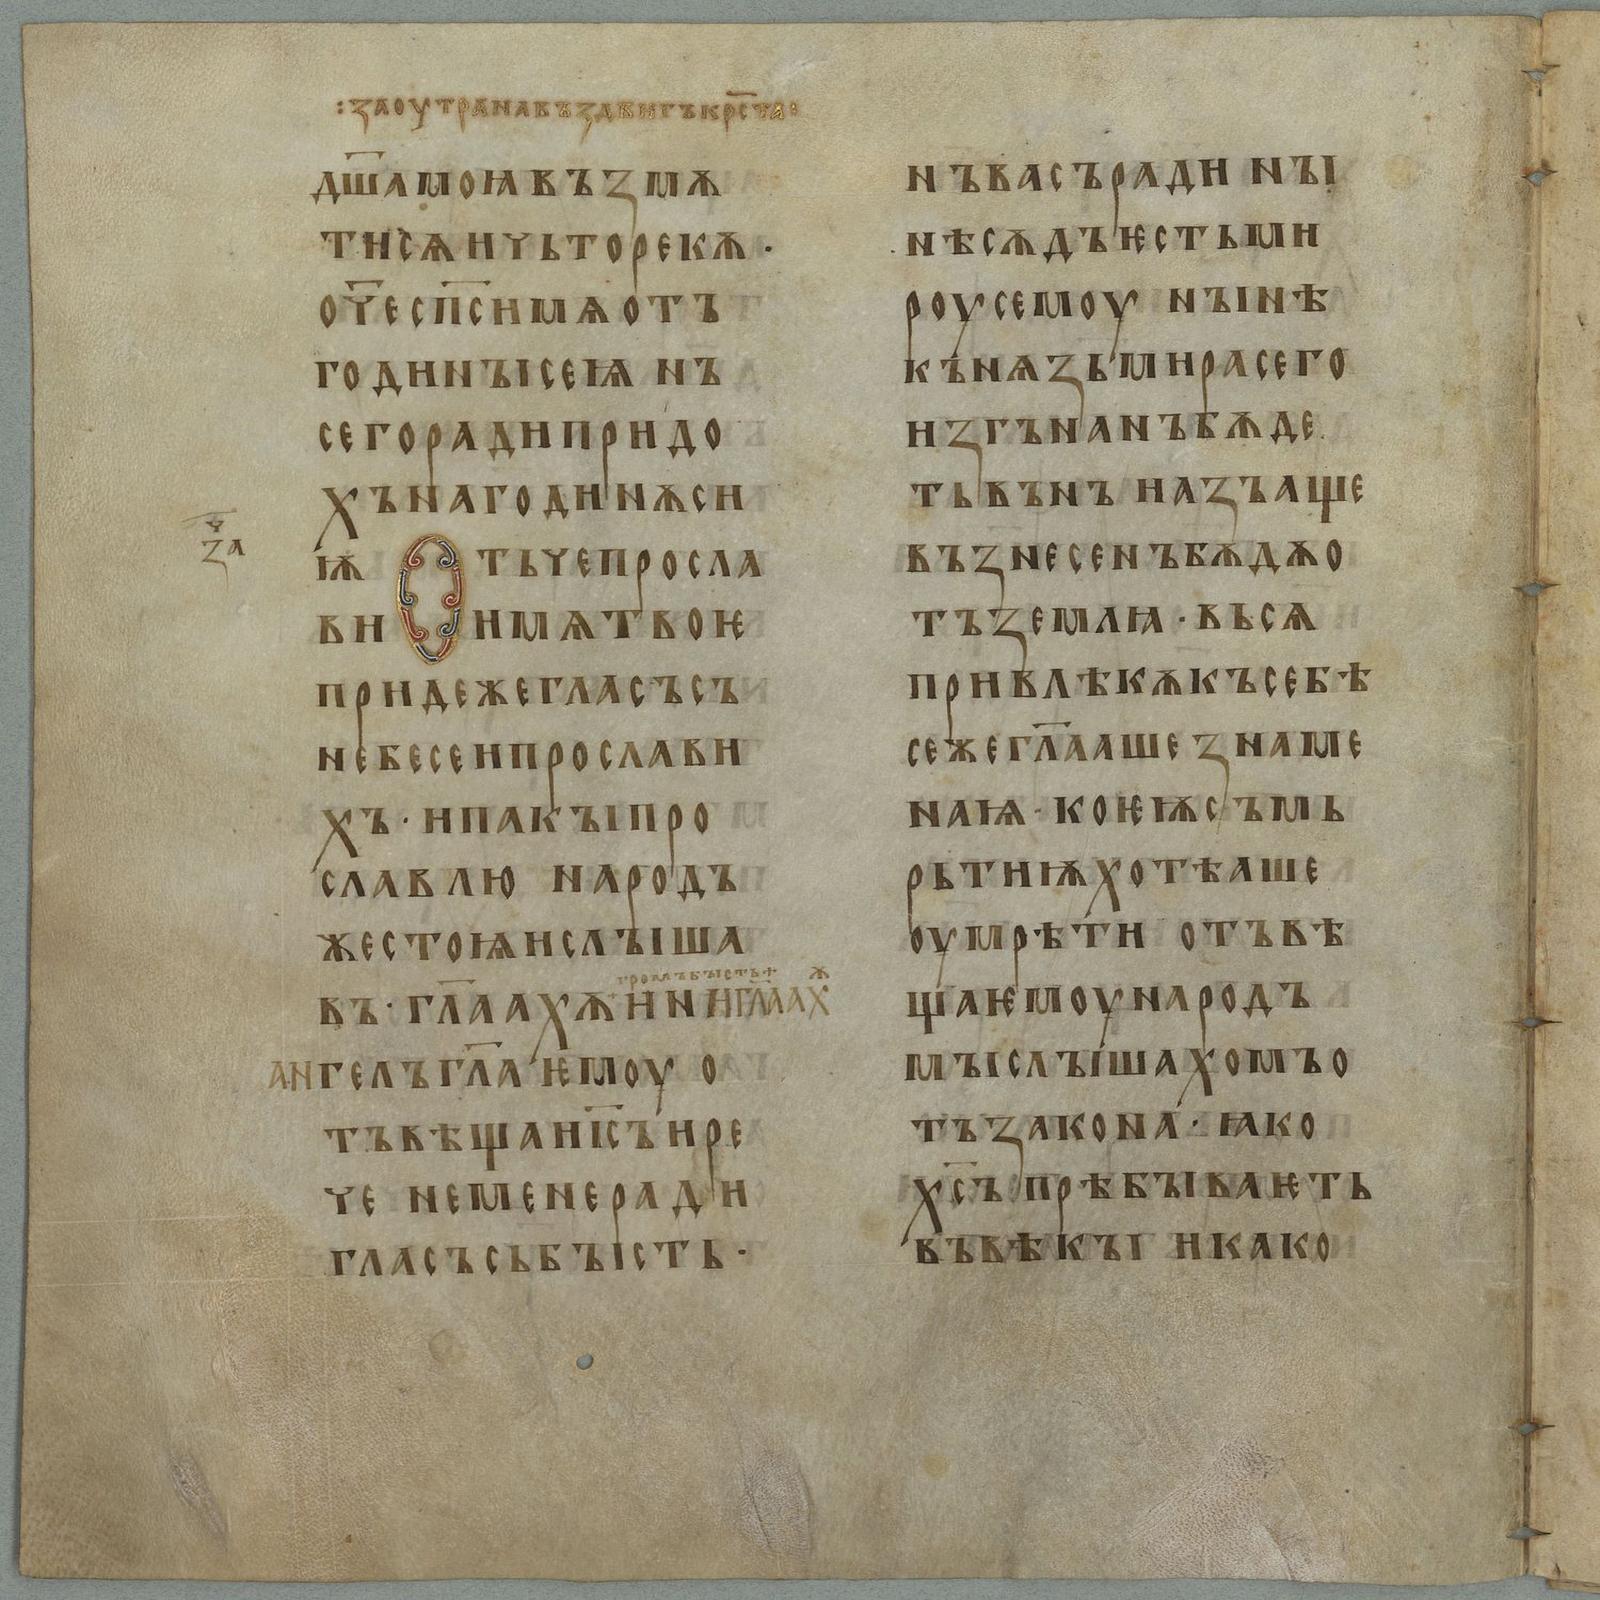 :заоутранавъздвигъкрс҃та:
дш҃амоꙗвъзмѧ
тисѧичьторекѫ·
оч҃есп҃симѧотъ
годинꙑсеѩ нъ
сегорадипридо
хънагодинѫси
ѭ Отьчепросла
ви имѧтвоѥ
придежегласъсъ
небесеипрослави
хъ· ипакꙑпро
славлю народъ
жестоꙗислꙑша
въ· гл҃аахѫини
громъбꙑсть
игл҃аахѫ
ангелъгл҃аѥмоу о
тъвѣщаиіс҃ъире
че неменеради
гласъсьбꙑсть·
ч҃
за
нъвасъради нꙑ
нѣсѫдъѥстьми
роусемоу нꙑнѣ
кънѧзьмирасего
изгънанъбѫде
тьвънъ иазъаще
възнесенъбѫдѫо
тъземлꙗ· вьсѧ
привлѣкѫкъсебѣ
сежегл҃ааше знаме
наꙗ· коѥѭсъмь
рьтиѭхотѣаше
оумрѣти отъвѣ
щаѥмоународъ
мꙑслꙑшахомъо
тъзакона· ꙗко
хс҃ъпрѣбꙑваѥть
въвѣкꙑ икако